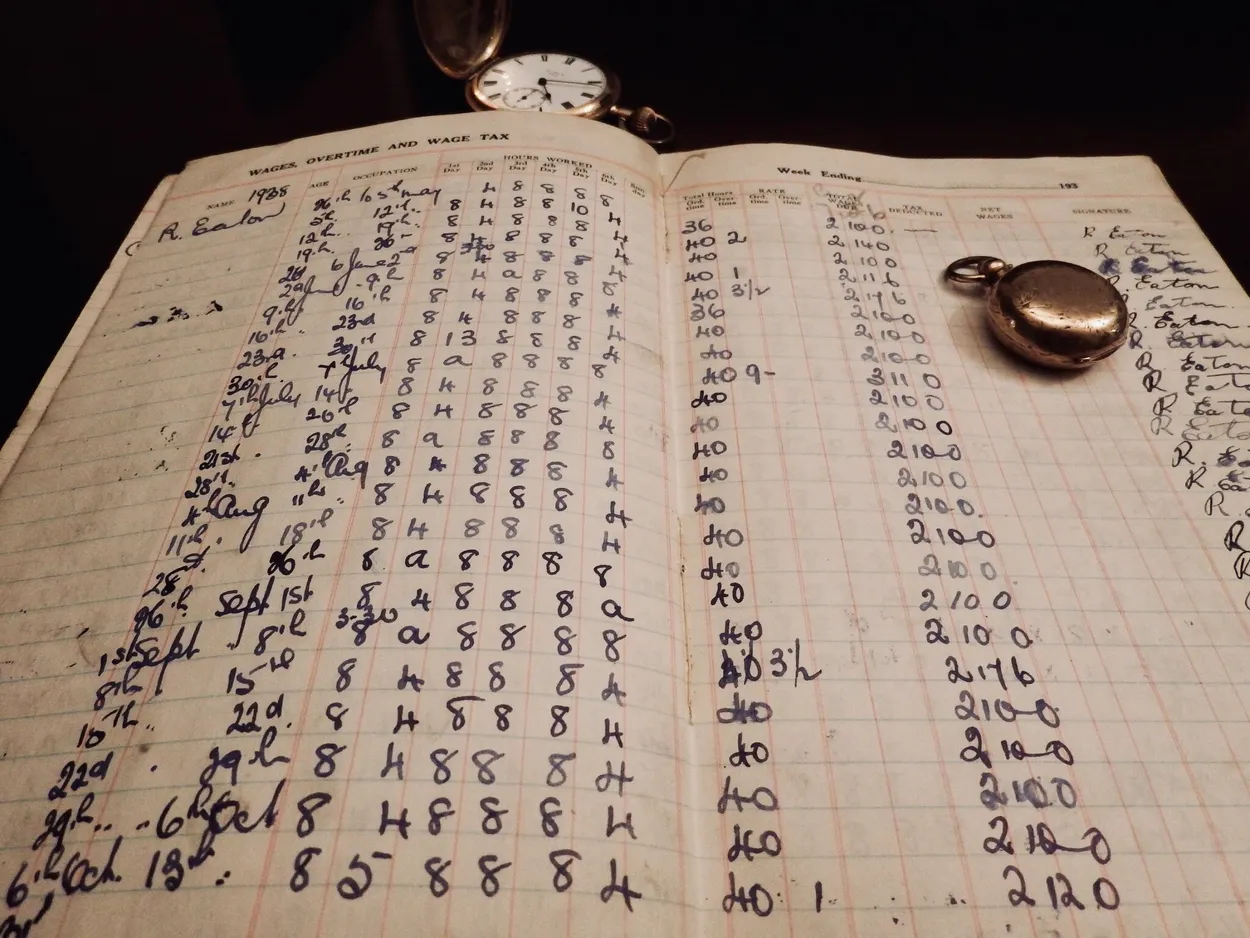 WAGES, OVERTIME AND WAGE TAX
Week Ending 193
NAME AGE OCCUPATION HOURS WORKED
1st Day 2nd Day 3rd Day 4th Day 5th Day 6th Day
Total Hours RATE TAX DEDUCTED NET WAGES SIGNATURE
Ord. time Over-time Ord. time Over-time
1938
R. Eaton 26th to 5th may 4 8 8 8 8 36 2 10 0 R Eaton
5th 12th 8 4 8 8 10 4 40 2 2 14 0 R Eaton
12th 19th 8 4 8 8 8 4 40 2 10 0 R Eaton
19th 26th 8 8 8 8 4 40 1 2 11 6 R. Eaton
2d 6 June 2nd 8 4 8 8 8 4 40 3 1/2 2 17 6 R. Eaton
2d June 9th 8 4 a 8 8 8 36 2 10 0 R. Eaton
9th 16th 8 4 8 8 8 4 40 2 10 0 R. Eaton
16th 23rd 8 4 8 8 8 4 40 2 10 0 R Eaton
23rd 30th 8 13 8 8 8 4 40 9- 3 11 0 R Eaton
30th 7th July 8 a 8 8 8 8 40 2 10 0 R Eaton
7th July 14th 8 4 8 8 8 4 40 2 10 0 R
14th 20th 8 4 8 8 8 4 40 2 10 0 R.
21st 28th 8 a 8 8 8 8 40 2 10 0 R
28th 4th Aug 8 4 8 8 8 4 40 2 10 0. R.
4th Aug 11th 8 4 8 8 8 4 40 2 10 0 R
11th 18th 8 4 8 8 8 4 40 2 10 0. R
28th 26th 8 a 8 8 8 8 40 2 10 0
26th Sept 1st 8 4 8 8 8 a 40 2 10 0
1st Sept 8th 3-30 8 a 8 8 8 8 40 3 1/2 2 17 6
8th 15th 8 4 8 8 8 4 40 2 10 0
15th 22d. 8 4 8 8 8 4 40 2 10 0
22d 29th 8 4 8 8 8 4 40 2 10 0
29th 6th Oct 8 4 8 8 8 4 40 2 10 0
6th Oct. 13th 8 5 8 8 8 4 40 1 2 12 0